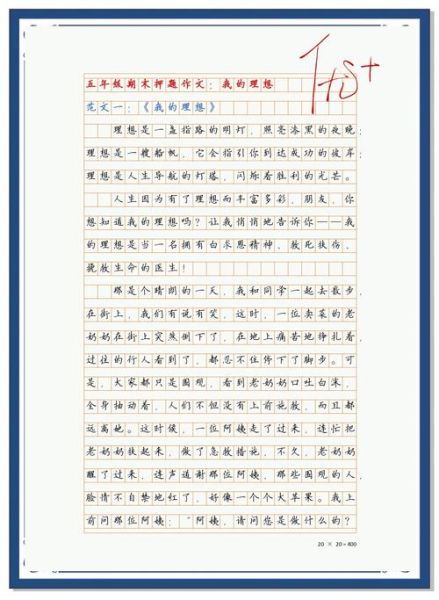 五年级期末押题作文：我的理想
范文一：《我的理想》
理想是一盏指路的明灯，照亮漆黑的夜晚；
理想是一艘船帆，它会指引你到达成功的彼岸；
理想是人生导航的灯塔，闪烁着胜利的光芒。
人生因为有了理想而丰富多彩，朋友，你
想知道我的理想吗？让我悄悄地告诉你——我
的理想是当一名拥有白求恩精神，救死扶伤，
挽救生命的医生！
那是个晴朗的一天，我和同学一起去散步，
在街上，我们有说有笑，这时，一位卖菜的老
奶奶在街上突然倒下了，在地上痛苦地挣扎着，
过往的行人看到了，都忍不住停下了脚步。可
是，大家都只是围观，看到老奶奶口吐白沫，
全身抽动着，人们不但没有上前施救，而且都
远离她。这时候，一位阿姨走了过来，连忙把
老奶奶扶起来，做了急救措施，不久，老奶奶
醒了过来，连声道谢那位阿姨，那些围观的人，
脸情不自禁地红了，好像一个个大苹果。我上
前问那位阿姨：“阿姨，请问您是做什么的？
20 × 20 = 400